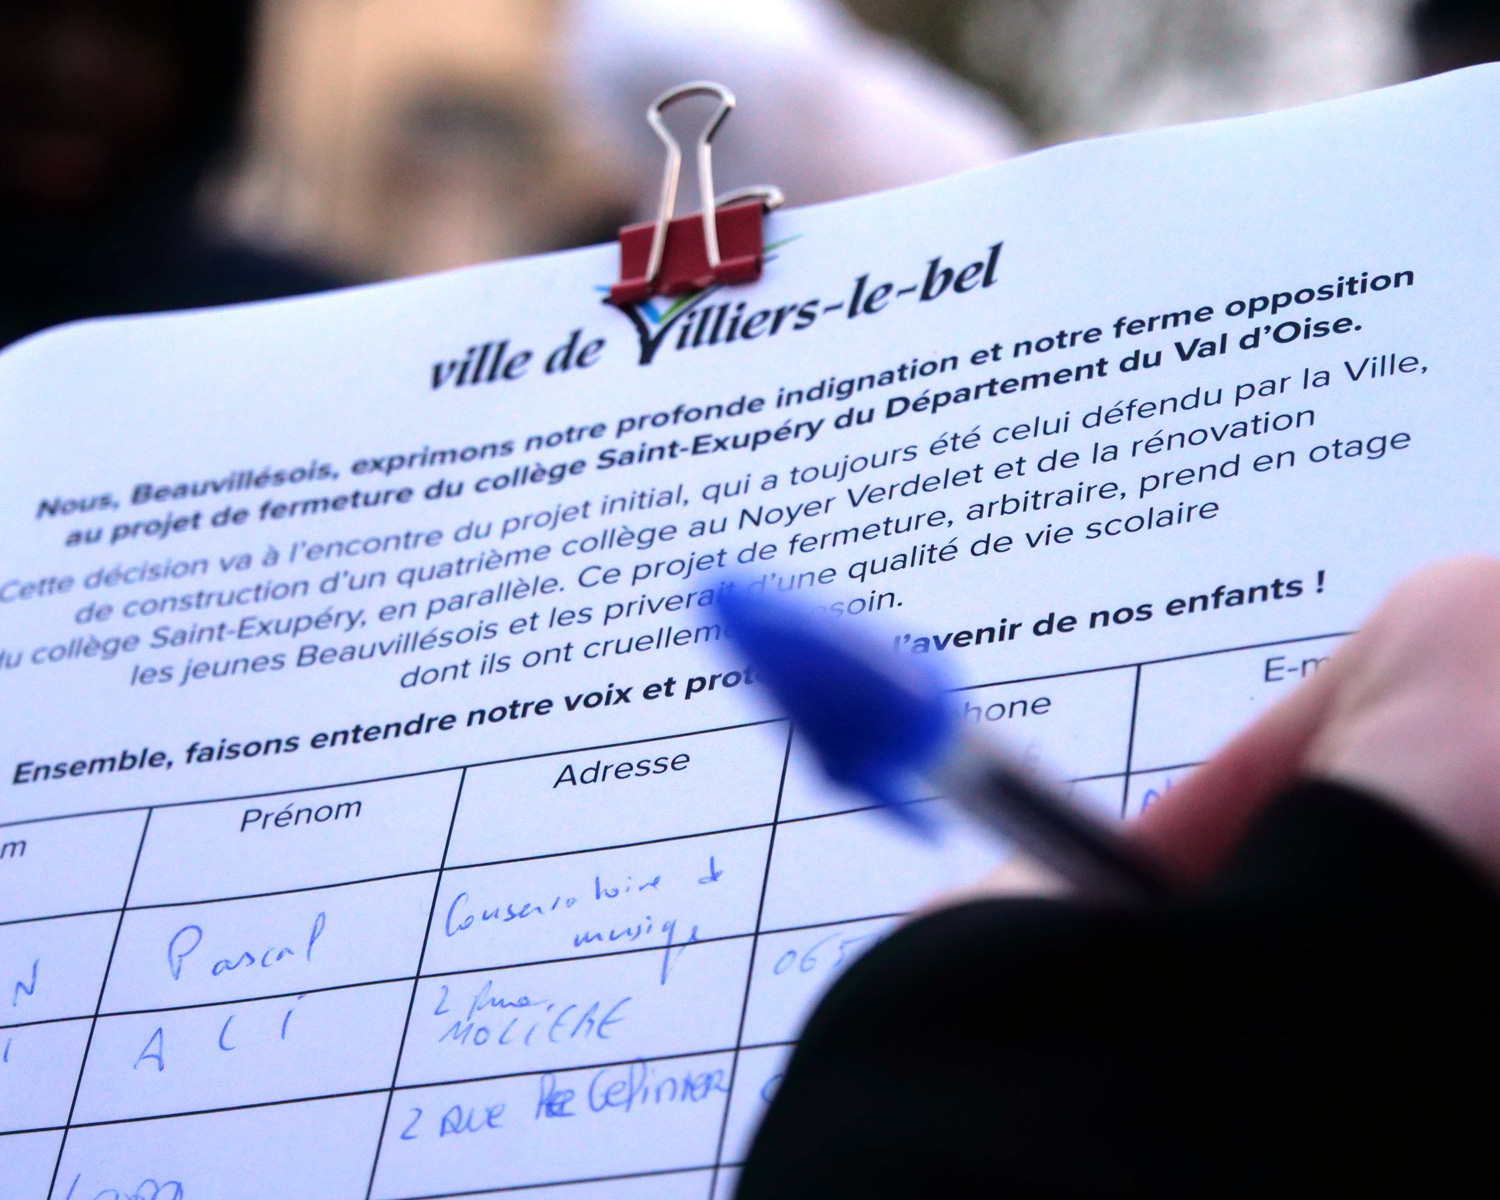 ville de Villiers-le-bel
Nous, Beauvillésois, exprimons notre profonde indignation et notre ferme opposition
au projet de fermeture du collège Saint-Exupéry du Département du Val d'Oise.
Cette décision va à l'encontre du projet initial, qui a toujours été celui défendu par la Ville,
de construction d'un quatrième collège au Noyer Verdelet et de la rénovation
du collège Saint-Exupéry, en parallèle. Ce projet de fermeture, arbitraire, prend en otage
les jeunes Beauvillésois et les priverait d'une qualité de vie scolaire
dont ils ont cruellem soin.
Ensemble, faisons entendre notre voix et prot l'avenir de nos enfants !
m Prénom Adresse hone E-m
N Pascal Conservatoire d
musiq
065
i ALI 2 Rue
MOLIERE
2 RUE